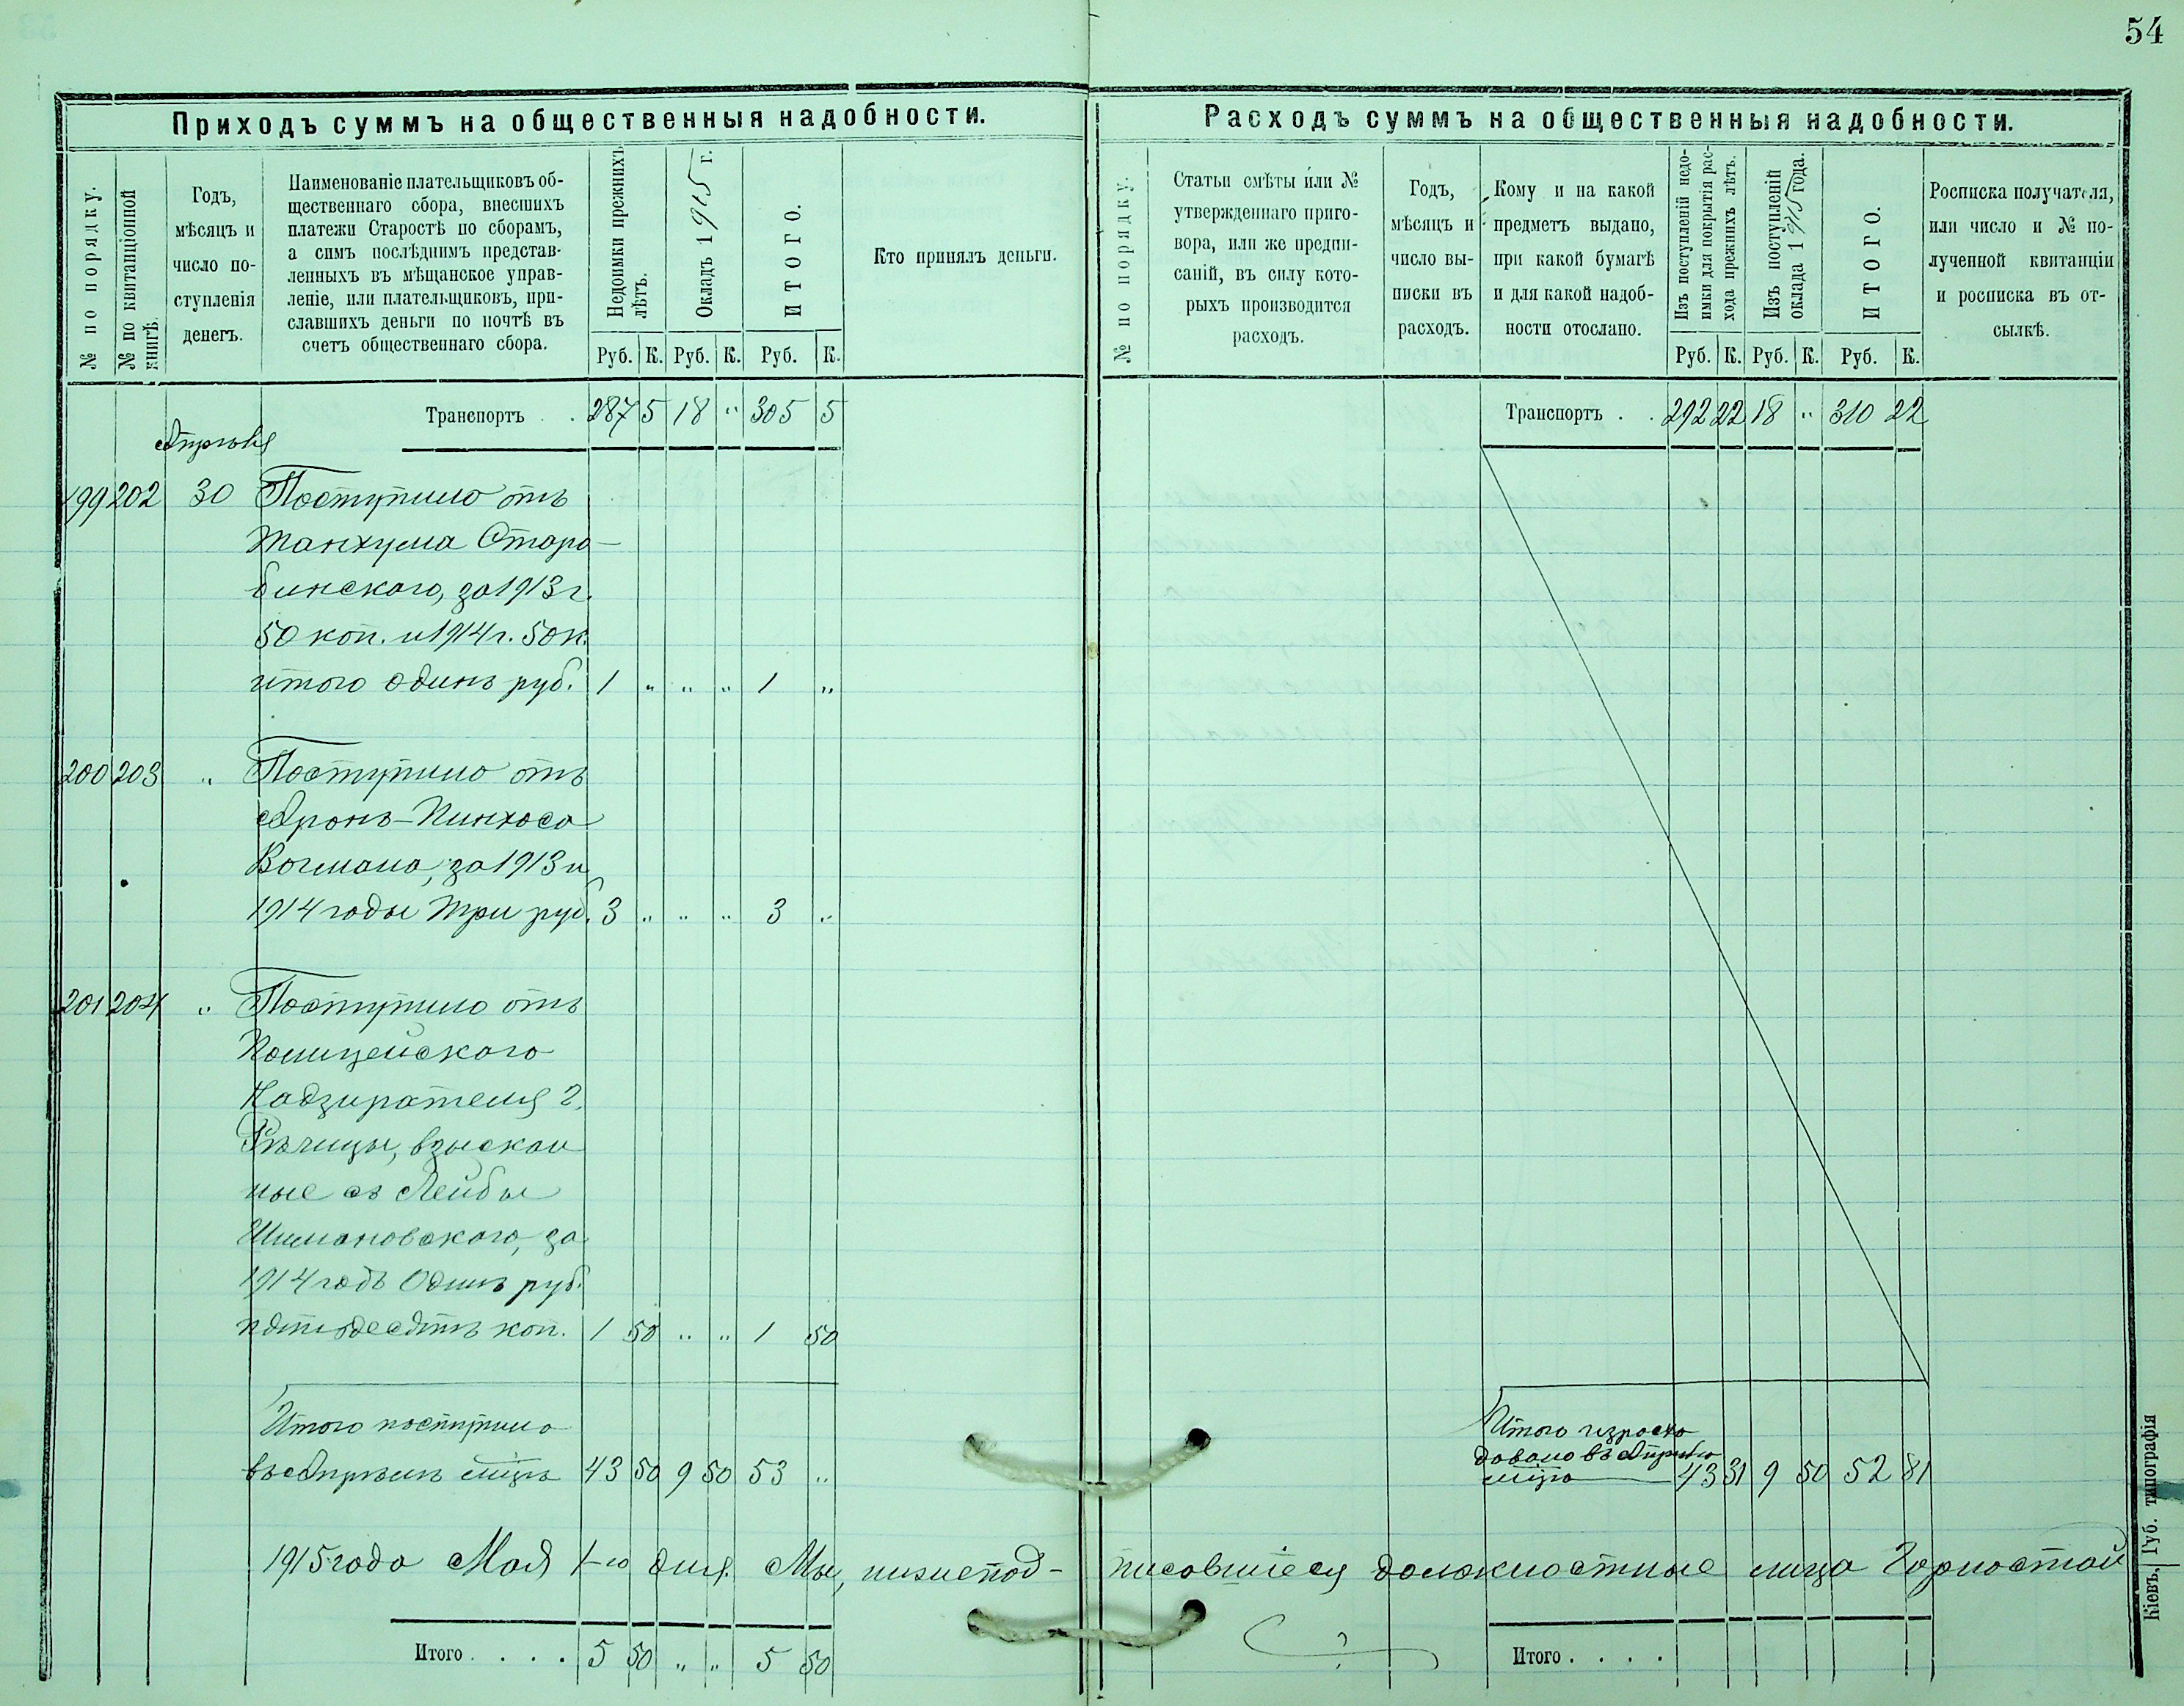 54
Приходъ суммъ на общественныя надобности.
№ по порядку.
№ по квитанціонной книгѣ.
Годъ,
мѣсяцъ и
число по-
ступленія
денегъ.
Наименованіе плательщиковъ об-
щественнаго сбора, внесшихъ
платежи Старостѣ по сборамъ,
а симъ послѣднимъ представ-
ленныхъ въ мѣщанское управ-
леніе, или плательщиковъ, при-
славшихъ деньги по почтѣ въ
счетъ общественнаго сбора.
Недоимки прежнихъ
лѣтъ.
Окладъ 1915 г.
ИТОГО.
Руб. К. Руб. К. Руб. К.
Кто принялъ деньги.
Транспортъ . . 287 5 18 " 305 5
Апрѣля
199 202 30 Поступило отъ
Танхума Старо-
бинскаго, за 1913 г.
50 коп. и 1914 г. 50 к.
итого одинъ руб. 1 " " " 1 "
200 203 " Поступило отъ
Аронъ-Пинхоса
Вогмана, за 1913 и
1914 годы три руб. 3 " " " 3 "
201 204 " Поступило отъ
Полицейскаго
Надзирателя г.
Рѣчицы, взыскан
ные съ Лейбы
Шимановскаго, за
1914 годъ Одинъ руб.
пятьдесятъ коп. 1 50 " " 1 50
Итого поступило
въ Апрѣлѣ м̃цѣ 43 50 9 50 53 "
1915 года Мая 1-го дня. Мы, нижепод-
Итого . . . . 5 50 " " 5 50
Расходъ суммъ на общественныя надобности.
№ по порядку.
Статьи смѣты или №
утвержденнаго приго-
вора, или же предпи-
саній, въ силу кото-
рыхъ производится
расходъ.
Годъ,
мѣсяцъ и
число вы-
писки въ
расходъ.
Кому и на какой
предметъ выдано,
при какой бумагѣ
и для какой надоб-
ности отослано.
Изъ поступленій недо-
имки для покрытія рас-
хода прежнихъ лѣтъ.
Изъ поступленій
оклада 1915 года.
ИТОГО.
Руб. К. Руб. К. Руб. К.
Росписка получателя,
или число и № по-
лученной квитанціи
и росписка въ от-
сылкѣ.
Транспортъ . . 292 22 18 " 310 22
Итого израсхо
довано въ Апрѣлѣ
м̃цѣ 43 31 9 50 52 81
писавшіеся должностные лица Горностай
Итого . . . .
Кіевъ, Губ. типографія